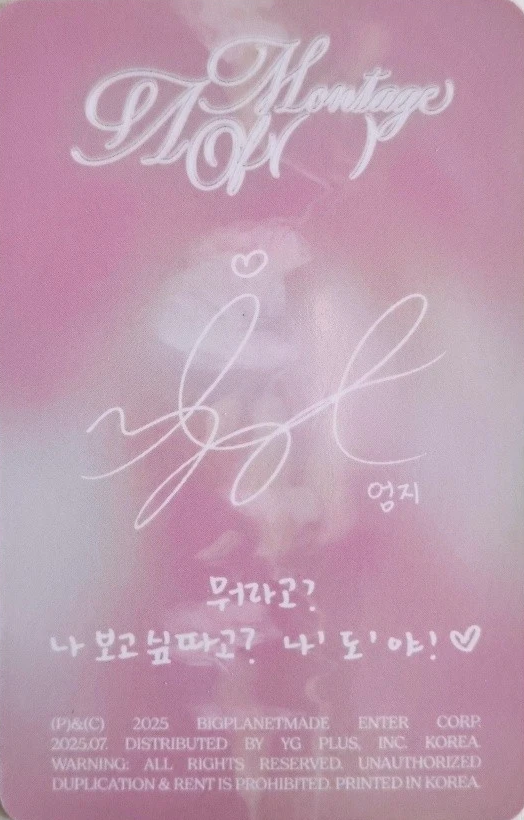 A Montage
Of ( )
엄지
뭐라고?
나 보고싶따고? 나' 도' 야! ♡
(P)&(C) 2025 BIGPLANETMADE ENTER CORP.
2025.07. DISTRIBUTED BY YG PLUS, INC. KOREA.
WARNING: ALL RIGHTS RESERVED. UNAUTHORIZED
DUPLICATION & RENT IS PROHIBITED. PRINTED IN KOREA.